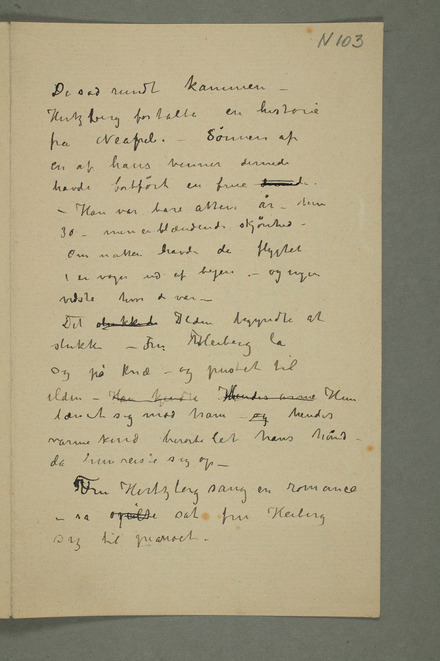 N 103
De sad rundt kaminen –
Hertzberg fortalte en historie
fra Neapel. – Sønnen af
en af hans venner dernede
havde bortført en frue
– Han var bare atten år – hun
30 – men en blændende skjønhed –
Om natten havde de flygtet
i en vogn ud af byen – og ingen
vidste hvor de var –
Det slukkede Ilden begyndte at
slukke – Fru Heiberg la
sig på knæ – og pustet til
ilden – Han kjendte Hendes arme Hun
lænet sig mod ham – og hendes
varme kind berørte let hans hånd –
da hun reiste sig op –
Fru Hertzberg sang en romance
– så spilte sat fru Heiberg
sig til pianoet.